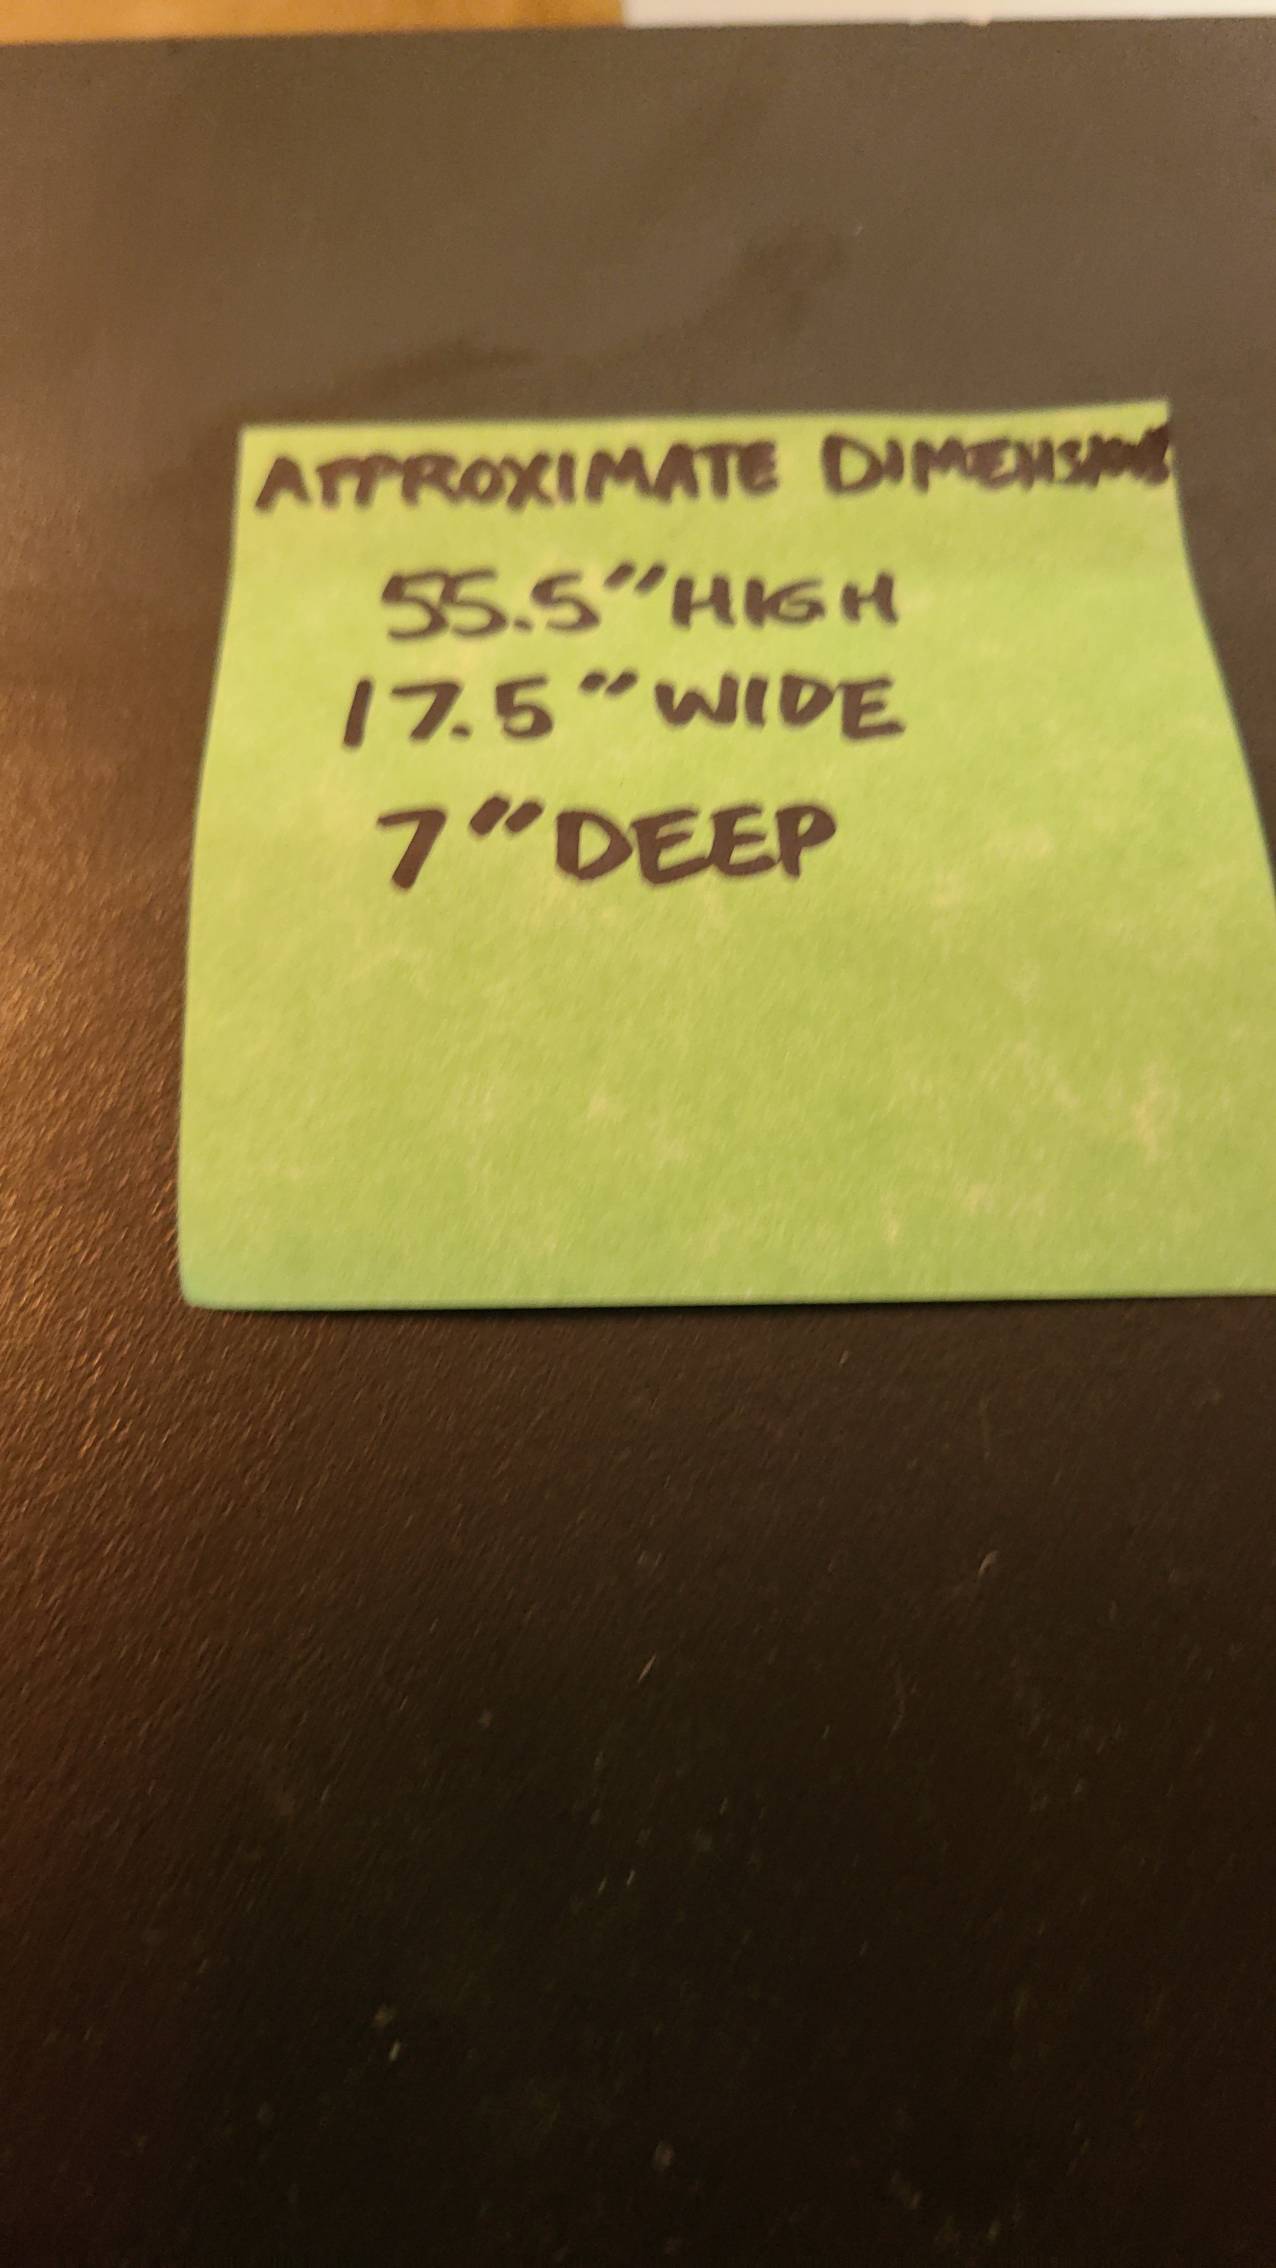 APPROXIMATE DIMENSIONS
55.5" HIGH
17.5" WIDE
7" DEEP